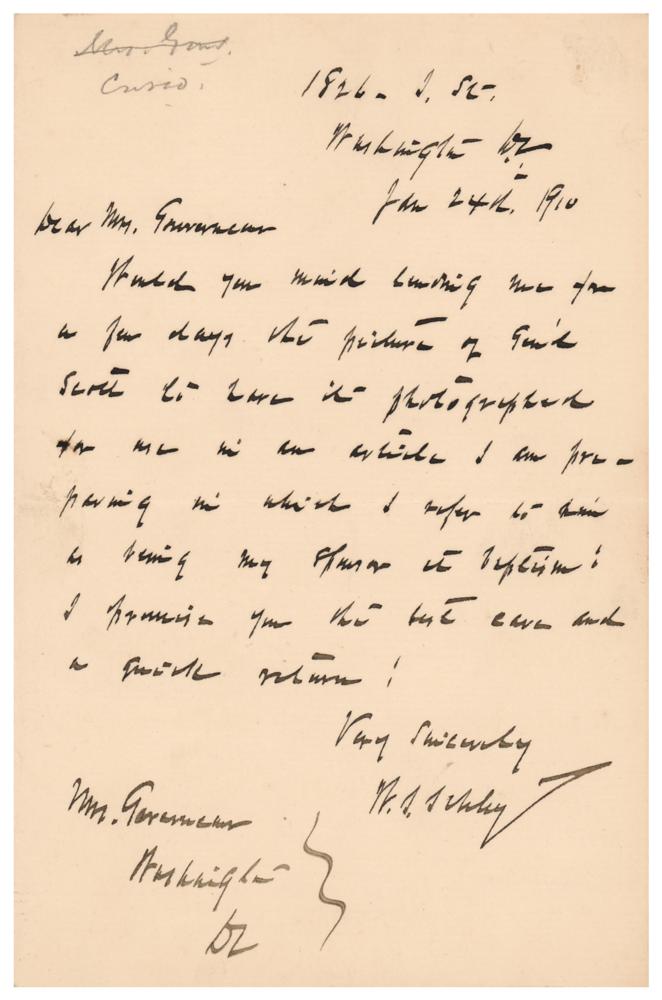 Mrs. Gouv.
1826 - I. St.
Washington DC
Jan 24th. 1910
Dear Mrs. Gouverneur
Would you mind lending me for
a few days the picture of Gen'l
Scott to have it photographed
for use in an article I am pre-
paring in which I refer to him
as being my sponsor at baptism!
I promise you the best care and
a quick return!
Very Sincerely
W. S. Schley
Mrs. Gouverneur
Washington
DC